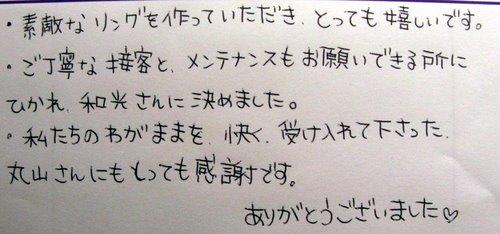 ・素敵な リングを作っていただき、とっても嬉しいです。
・ご丁寧な接客と、メンテナンスもお願いできる所に
ひかれ、和光さんに決めました。
・私たちのわがままを、快く、受け入れて下さった、
丸山さんにもとっても感謝です。
ありがとうございました♡